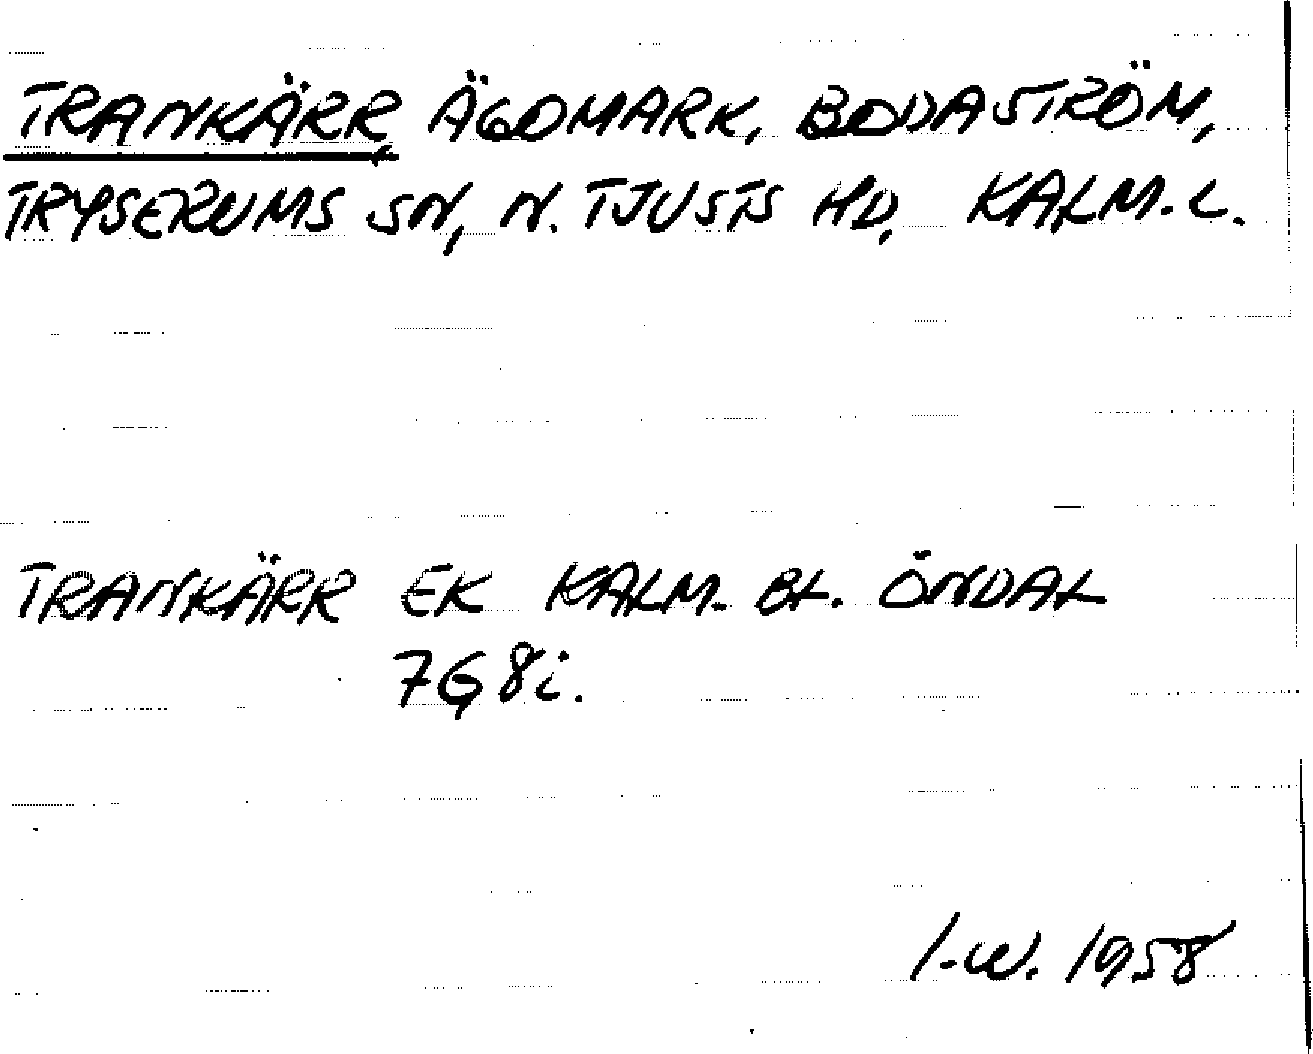 TRANKÄRR, ÄGOMARK, BODASTRÖM,
TRYSERUMS SN, N. TJUSTS HD, KALM. L.
TRANKÄRR EK KALM. BL. ÖNDAL
7G 8i.
I-W. 1958